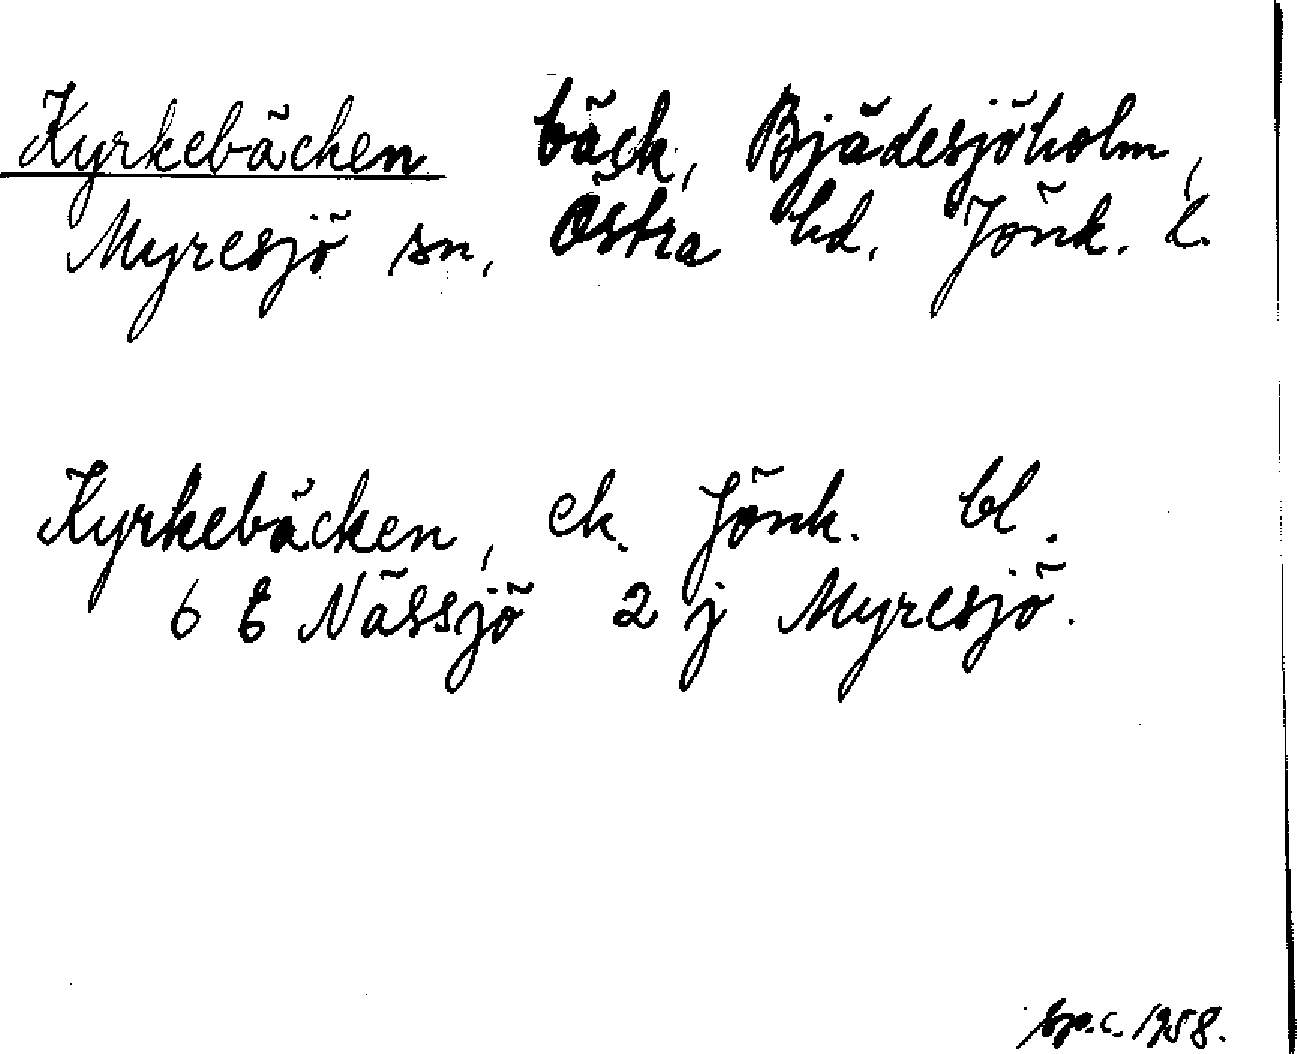 Kyrkebäcken bäck, Bjädesjöholm,
Myresjö sn, Östra hd. Jönk. L.
Kyrkebäcken, ek. Jönk. bl.
6 E Nässjö 2 j Myresjö.
1958.